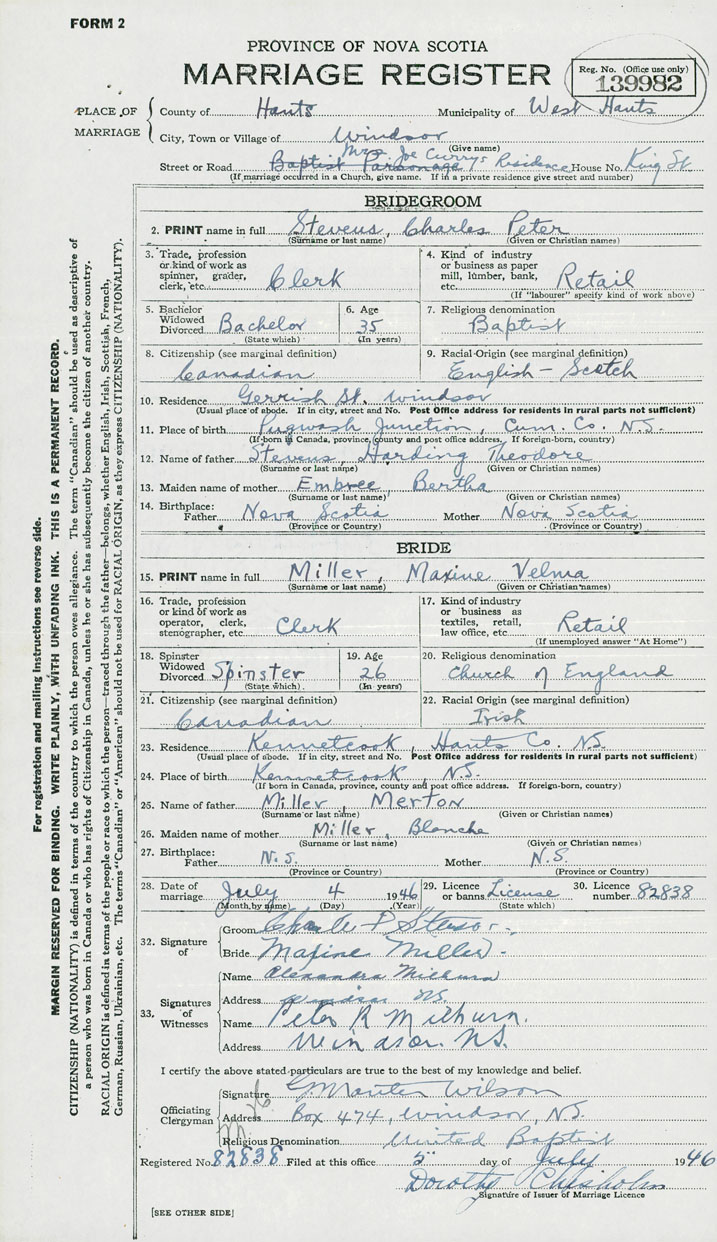 FORM 2
PROVINCE OF NOVA SCOTIA
MARRIAGE REGISTER
Reg. No. (Office use only)
139982
PLACE OF MARRIAGE
County of Hants Municipality of West Hants
City, Town or Village of Windsor
(Give name)
Mrs. Joe Curry's Residence
Street or Road Baptist Parsonage House No. King St.
(If marriage occurred in a Church, give name. If in a private residence give street and number)
BRIDEGROOM
2. PRINT name in full Stevens, Charles Peter
(Surname or last name) (Given or Christian names)
3. Trade, profession or kind of work as spinner, grader, clerk, etc. Clerk
4. Kind of industry or business as paper mill, lumber, bank, etc. Retail
(If "labourer" specify kind of work above)
5. Bachelor Widowed Divorced Bachelor
(State which)
6. Age 35
(In years)
7. Religious denomination
Baptist
8. Citizenship (see marginal definition)
Canadian
9. Racial Origin (see marginal definition)
English - Scotch
10. Residence Gerrish St. Windsor
(Usual place of abode. If in city, street and No. Post Office address for residents in rural parts not sufficient)
11. Place of birth Pugwash Junction, Cum. Co. N.S.
(If born in Canada, province, county and post office address. If foreign-born, country)
12. Name of father Stevens, Harding Theodore
(Surname or last name) (Given or Christian names)
13. Maiden name of mother Embree Bertha
(Surname or last name) (Given or Christian names)
14. Birthplace:
Father Nova Scotia Mother Nova Scotia
(Province or Country) (Province or Country)
BRIDE
15. PRINT name in full Miller, Maxine Velma
(Surname or last name) (Given or Christian names)
16. Trade, profession or kind of work as operator, clerk, stenographer, etc. Clerk
17. Kind of industry or business as textiles, retail, law office, etc. Retail
(If unemployed answer "At Home")
18. Spinster Widowed Divorced Spinster
(State which)
19. Age 26
(In years)
20. Religious denomination
Church of England
21. Citizenship (see marginal definition)
Canadian
22. Racial Origin (see marginal definition)
Irish
23. Residence Kennetcook, Hants Co. N.S.
(Usual place of abode. If in city, street and No. Post Office address for residents in rural parts not sufficient)
24. Place of birth Kennetcook N.S.
(If born in Canada, province, county and post office address. If foreign-born, country)
25. Name of father Miller, Merton
(Surname or last name) (Given or Christian names)
26. Maiden name of mother Miller, Blanche
(Surname or last name) (Given or Christian names)
27. Birthplace:
Father N.S. Mother N.S.
(Province or Country) (Province or Country)
28. Date of marriage July 4 1946
(Month by name) (Day) (Year)
29. Licence or banns License
(State which)
30. Licence number 82838
32. Signature of
Groom Charles P Stevens
Bride Maxine Miller
33. Signatures of Witnesses
Name Alexandra Milburn
Address Windsor NS.
Name Peter R Milburn.
Address Windsor. NS.
I certify the above stated particulars are true to the best of my knowledge and belief.
Officiating Clergyman
Signature Wilson
Address Box 474, Windsor, N.S.
Religious Denomination United Baptist
Registered No. 82838 Filed at this office 5" day of July 1946
Dorothy Chisholm
Signature of Issuer of Marriage Licence
[SEE OTHER SIDE]
For registration and mailing instructions see reverse side.
MARGIN RESERVED FOR BINDING. WRITE PLAINLY, WITH UNFADING INK. THIS IS A PERMANENT RECORD.
CITIZENSHIP (NATIONALITY) is defined in terms of the country to which the person owes allegiance. The term "Canadian" should be used as descriptive of
a person who was born in Canada or who has rights of Citizenship in Canada, unless he or she has subsequently become the citizen of another country.
RACIAL ORIGIN is defined in terms of the people or race to which the person—traced through the father—belongs, whether English, Irish, Scottish, French,
German, Russian, Ukrainian, etc. The terms "Canadian" or "American" should not be used for RACIAL ORIGIN, as they express CITIZENSHIP (NATIONALITY).